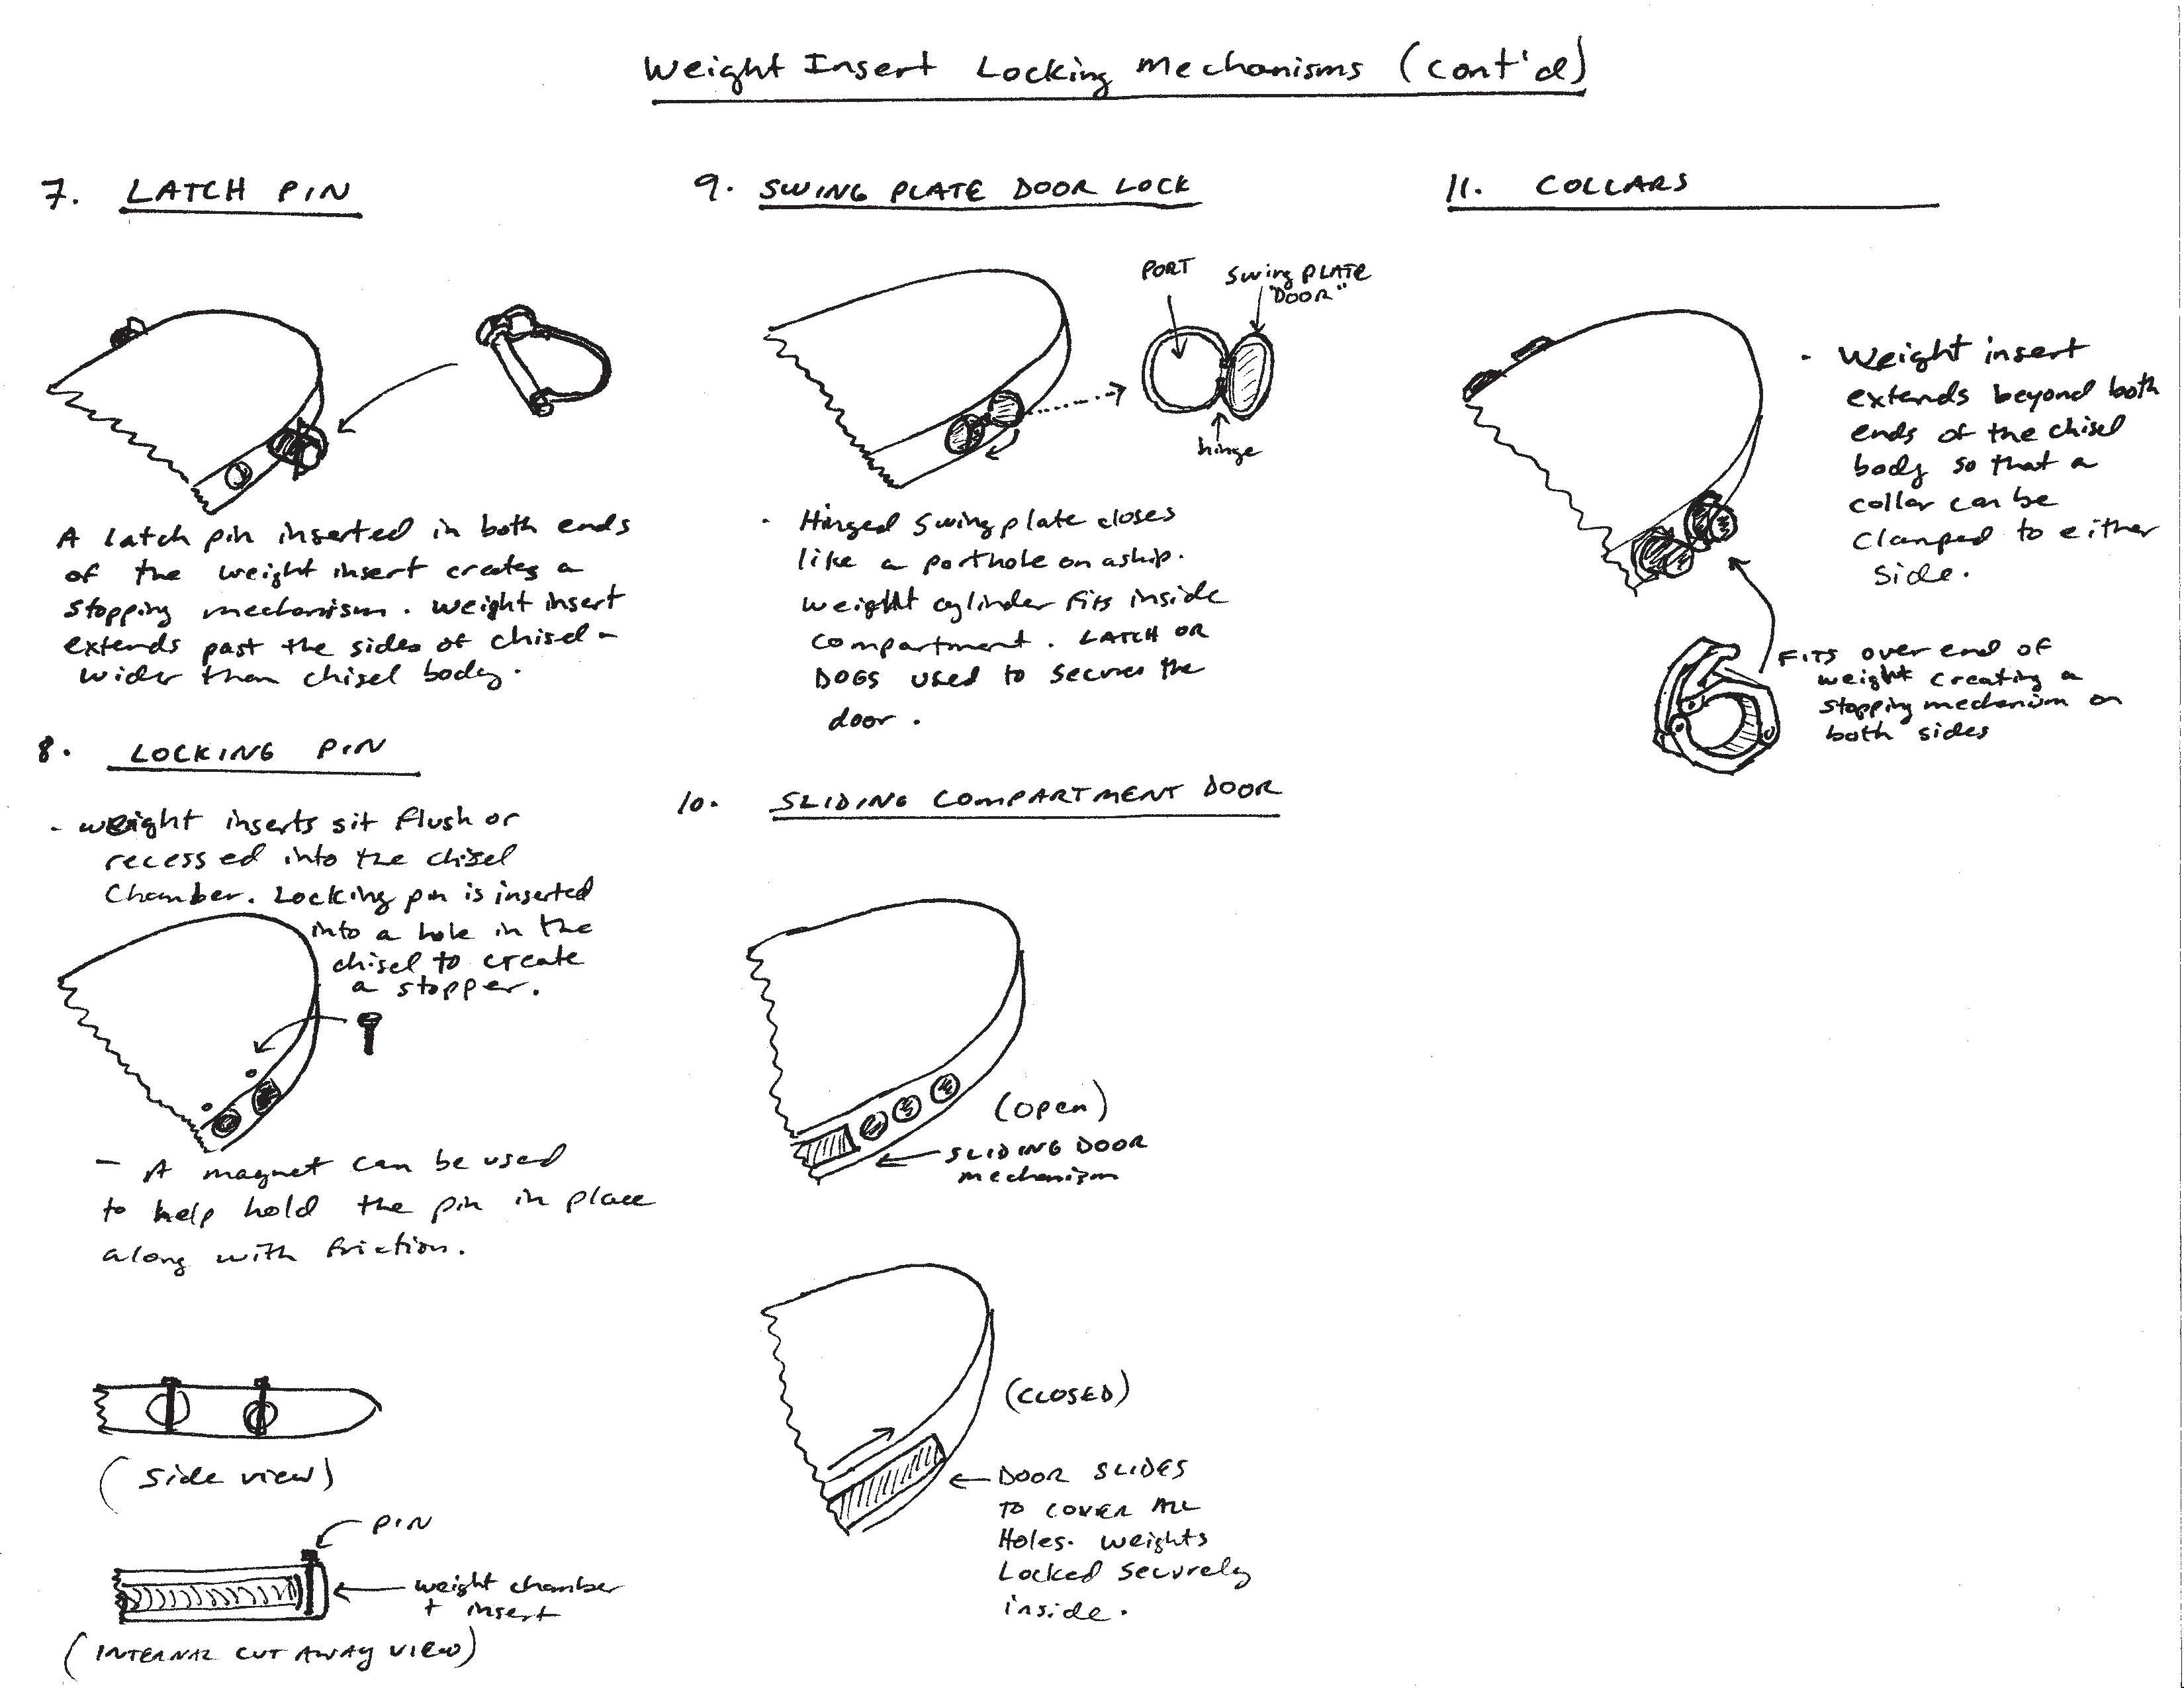 Weight Insert Locking Mechanisms (cont'd)
7. LATCH PIN
A latch pin inserted in both ends
of the weight insert creates a
stopping mechanism. Weight insert
extends past the sides of chisel -
wider than chisel body.
8. LOCKING PIN
- weight inserts sit flush or
recessed into the chisel
Chamber. Locking pin is inserted
into a hole in the
chisel to create
a stopper.
- A magnet can be used
to help hold the pin in place
along with friction.
(side view)
PIN
weight chamber
+ insert
(INTERNAL CUT AWAY VIEW)
9. SWING PLATE DOOR LOCK
PORT
Swing PLATE
"DOOR"
hinge
- Hinged swing plate closes
like a porthole on a ship.
weight cylinder fits inside
compartment. LATCH OR
DOGS used to secure the
door.
10. SLIDING COMPARTMENT DOOR
(open)
SLIDING DOOR
mechanism
(CLOSED)
DOOR SLIDES
TO COVER ALL
Holes. Weights
Locked securely
inside.
11. COLLARS
- Weight insert
extends beyond both
ends of the chisel
body so that a
collar can be
clamped to either
side.
FITS over end of
weight creating a
stopping mechanism on
both sides